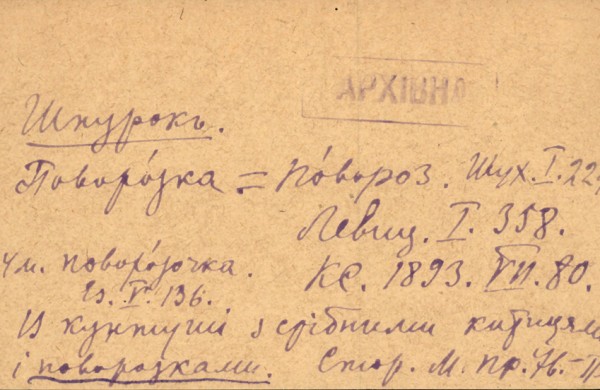 АРХІВНА
Шнурокъ.
Поворо́зка = по́вороз. Шух. I. 22
Левиц. I. 358.
Ум. поворо́зочка. КС. 1893. VII. 80.
Гл. V. 136.
В кунтуші з срібними китицями
і поворозками. Стор. М. Пр. 76.